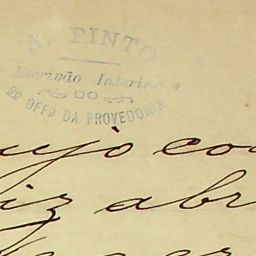 A. PINTO
Escrivão Interino
DO
2º OFFº DA PROVEDORIA
ujo co
iz abr